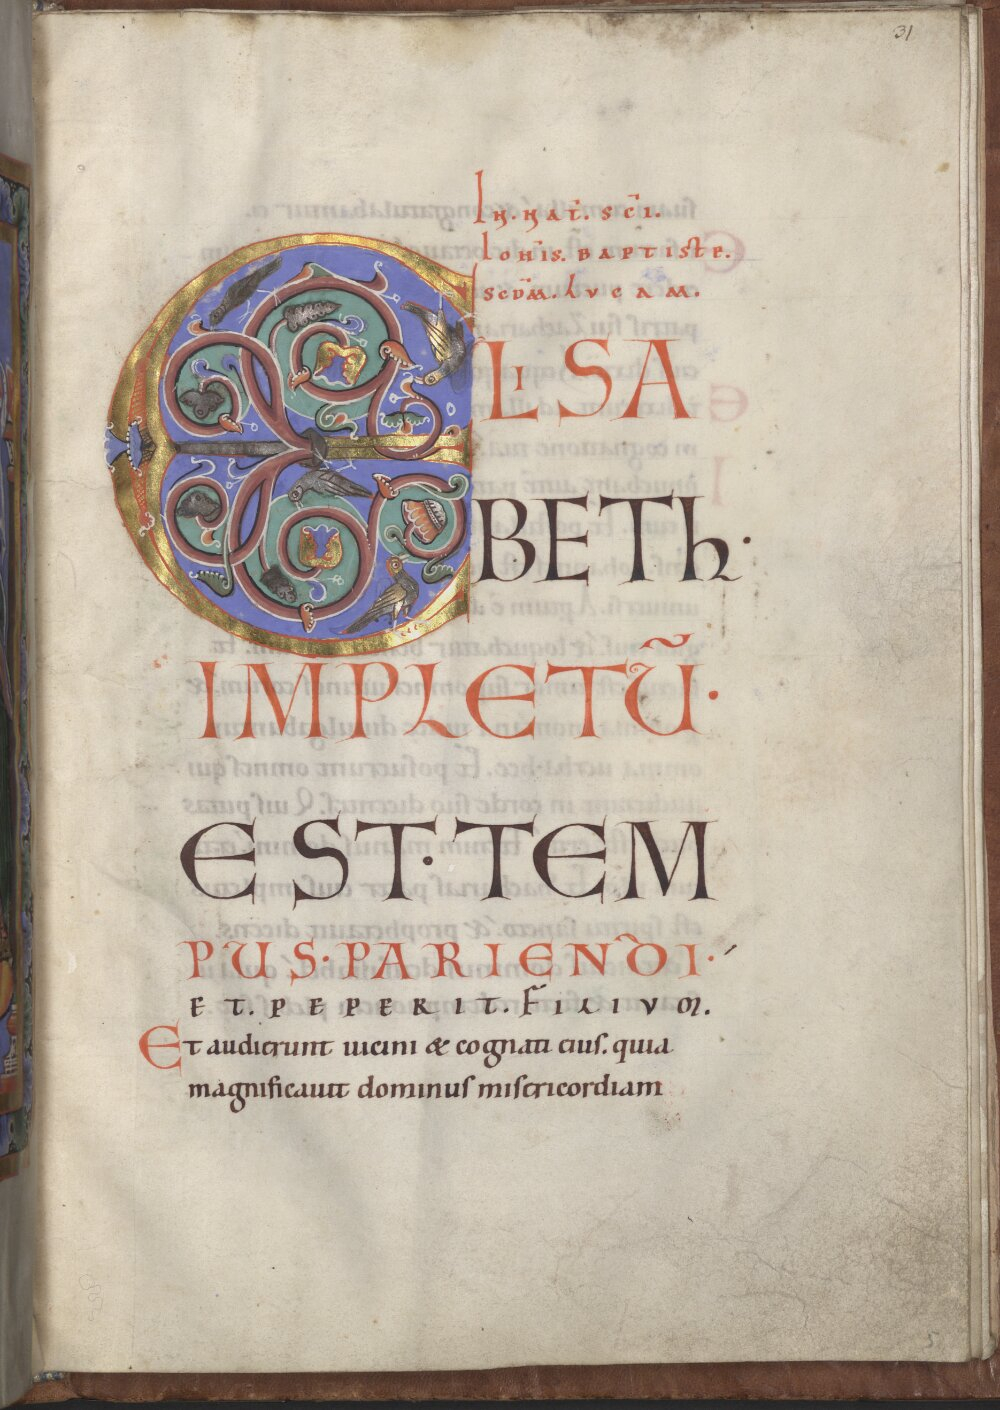 31
IN. NAT̄. SC̄I.
IOHIS̄. BAPTISTE.
SCD̄M. LVCAM.
ELISA
BETH·
IMPLETŪ·
EST·TEM
PUS·PARIENDI·
ET. PEPERIT. FILIVM.
Et audierunt uicini & cognati eius. quia
magnificauit dominus misericordiam